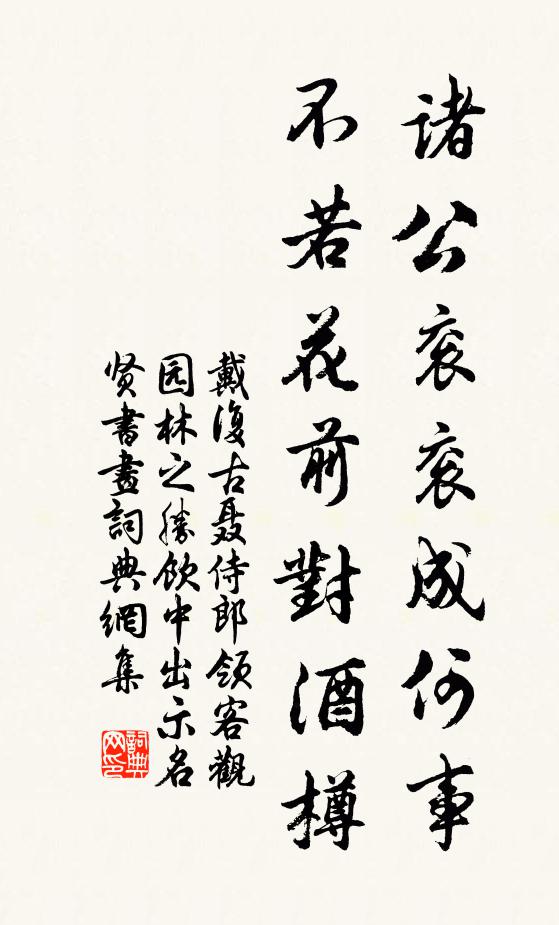 諸公衮衮成何事
不若花前對酒樽
戴復古聂侍郎領客觀
园林之勝飲中出示名
贤書畫詞典網集
詞典网印